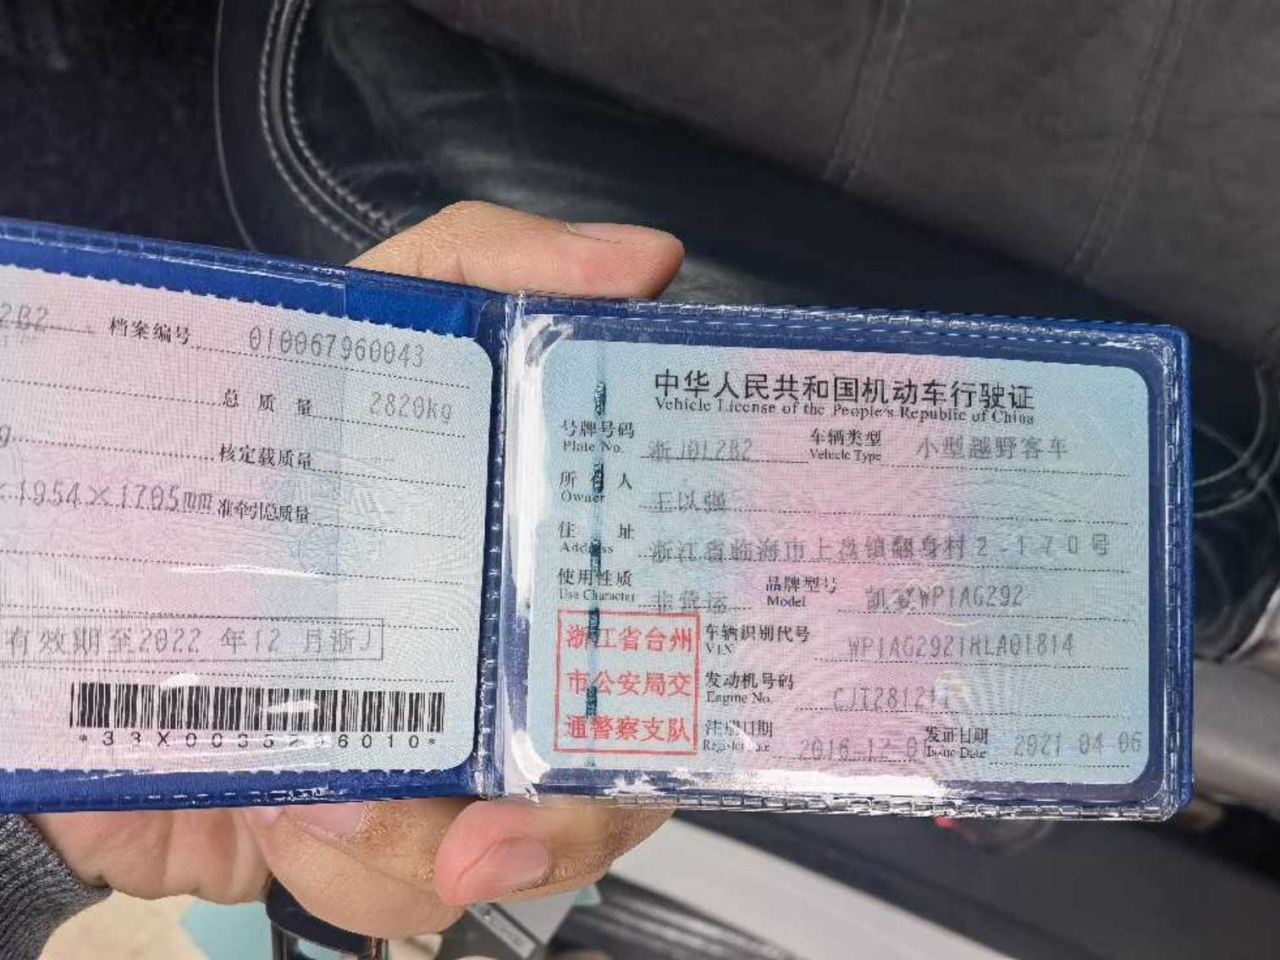 2B2
档案编号 010067960043
总质量 2820kg
核定载质量
1954×1705mm 准牵引总质量
有效期至2022年12月浙J
中华人民共和国机动车行驶证
Vehicle License of the People's Republic of China
号牌号码 浙J012B2 车辆类型 小型越野客车
Plate No. Vehicle Type
所有人 王以强
Owner
住址 浙江省临海市上盘镇翻身村2-170号
Address
使用性质 非营运 品牌型号 凯宴WP1AG292
Use Character Model
浙江省台州
市公安局交
通警察支队
车辆识别代号 WP1AG2921KLA01814
VIN
发动机号码
Engine No.
注册日期 发证日期 2021-04-06
Register Date Issue Date